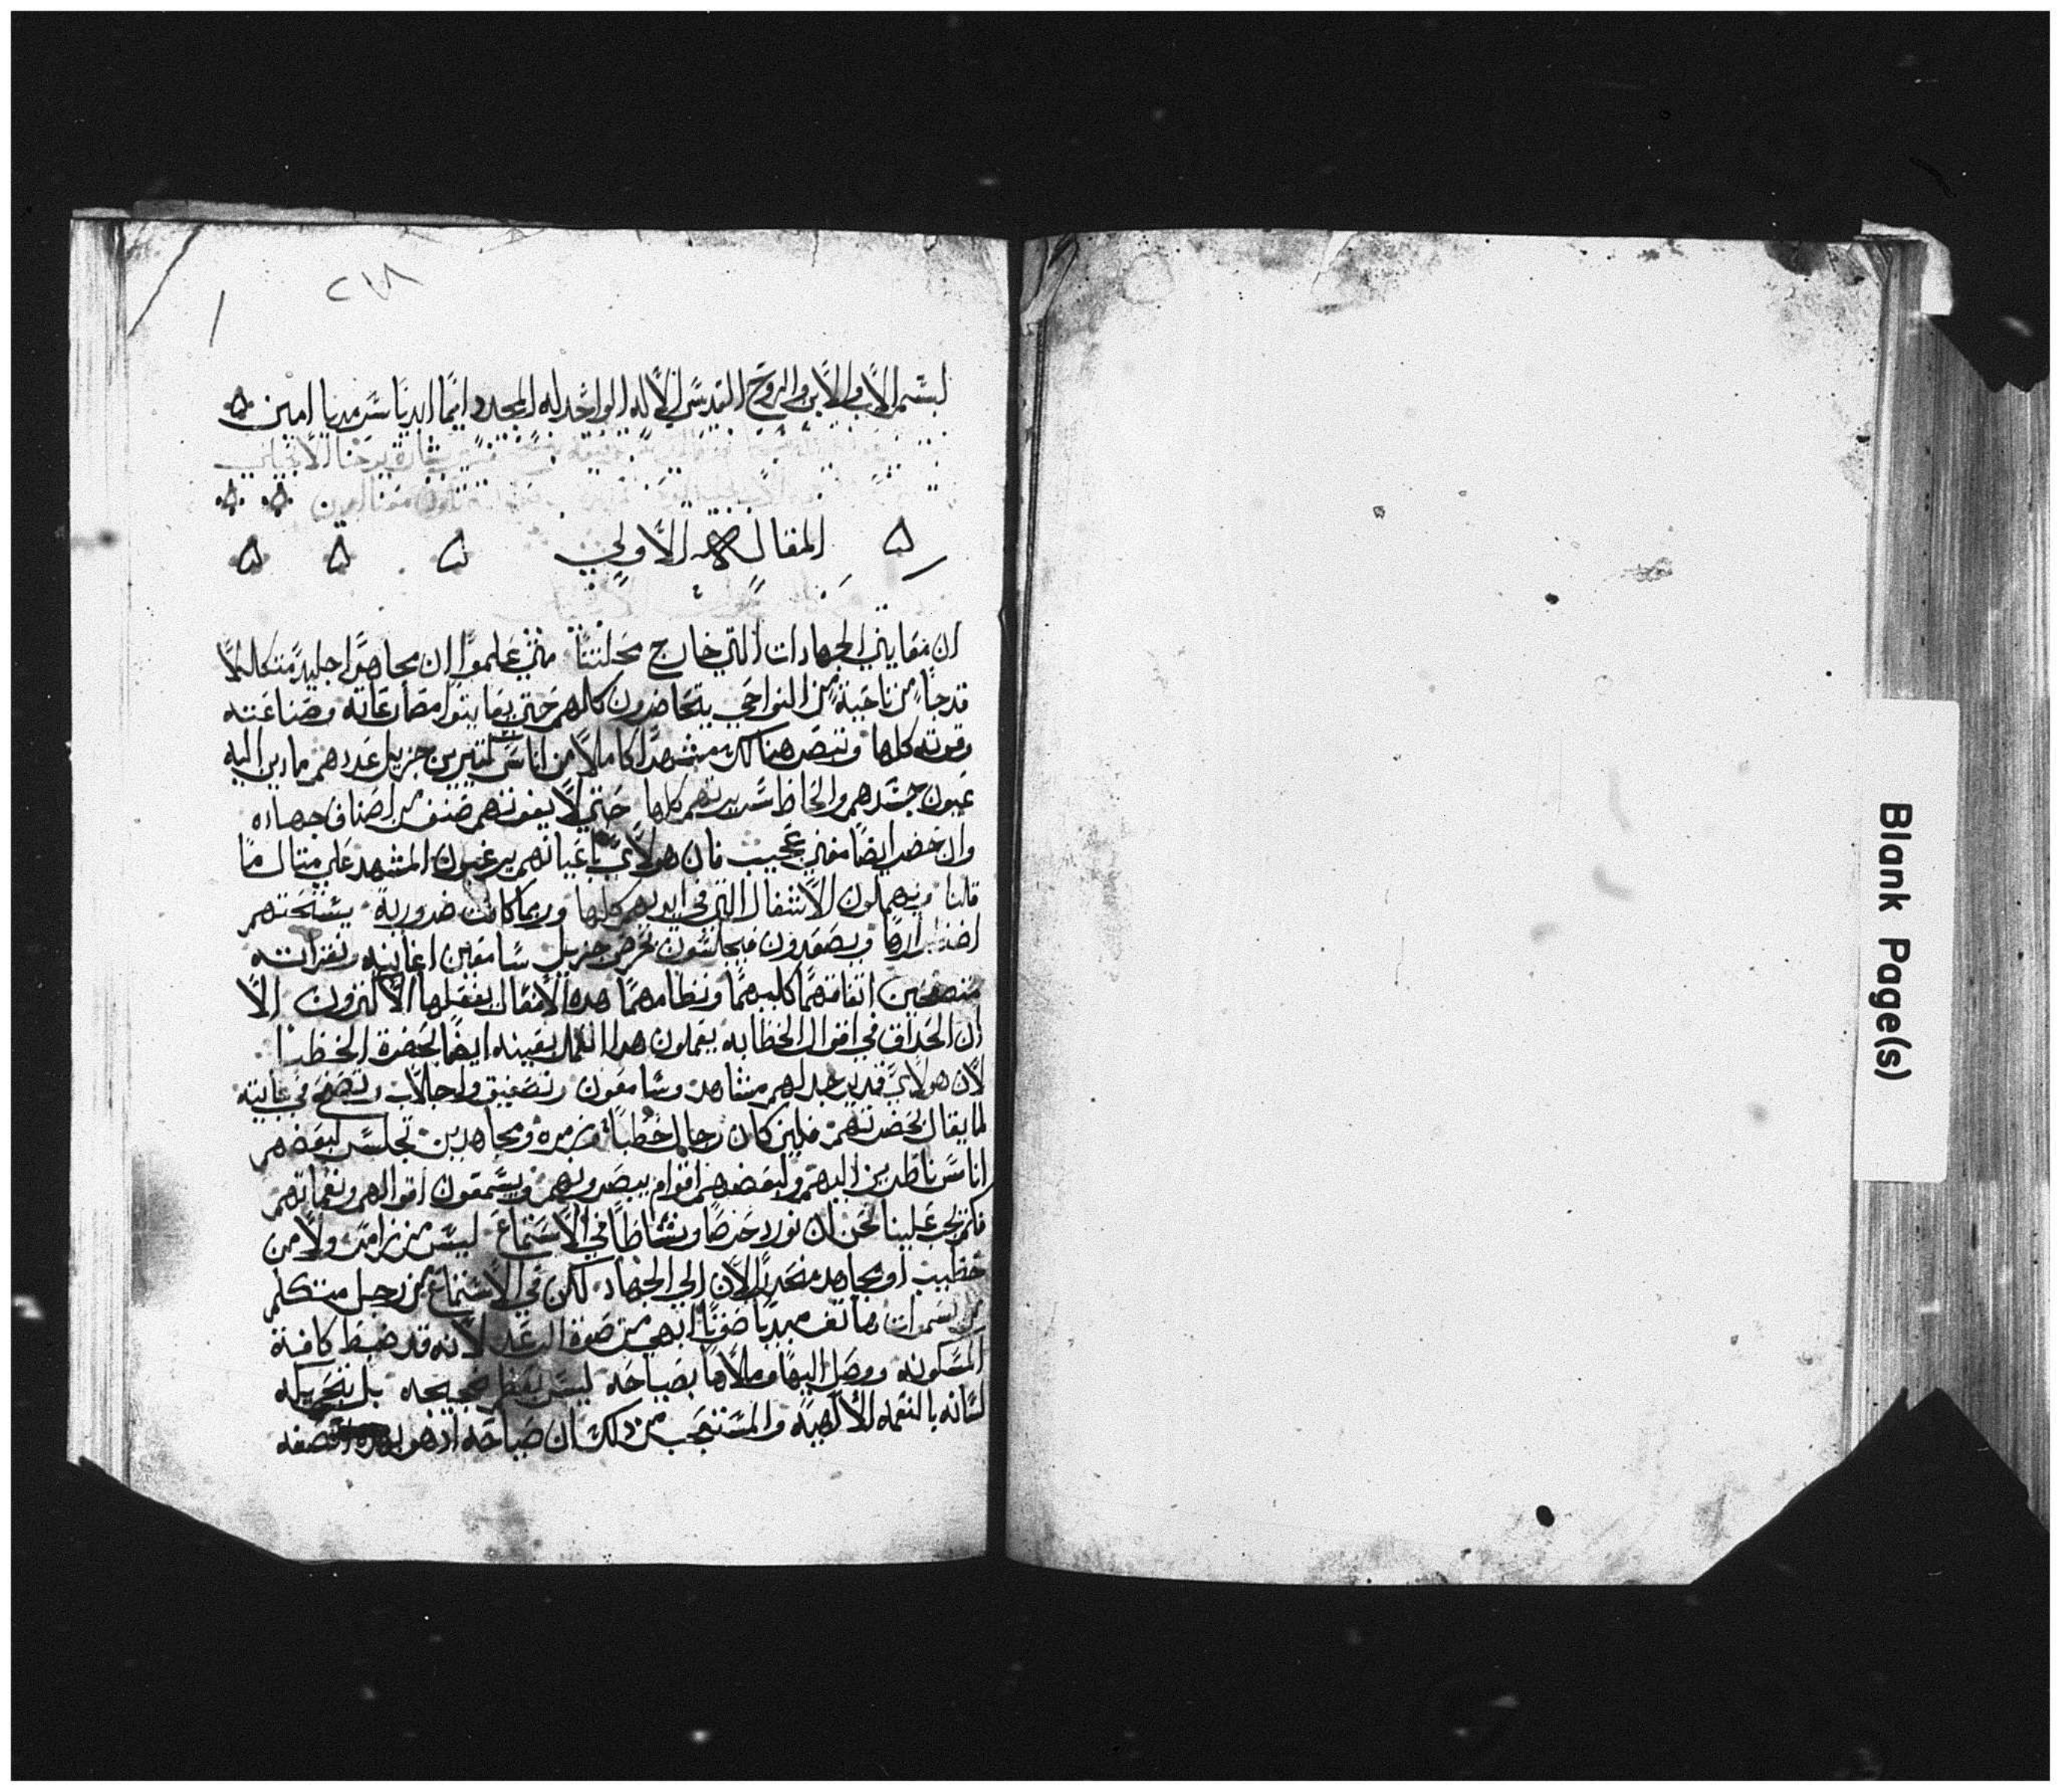 ٢٧٨
بسم الاب والابن والروح القدس الاله الواحد له المجد دايمًا ابديا سرمديا امين
بشارة يوحنا الانجيلي
امين
المقاله الاولي
ان معايني الجهادات التي خارج محلتنا متي علموا ان مجاهدا جليدا متكاملا
قد جا من ناحية من النواحي يتحاضرون كلهم حتي يعاينوا مصارعاته وصناعته
وقوته كلها وتبصر هنالك مشهدا كاملا من اناس كتيرين جزيل عددهم مادين اليه
عيون جسدهم والحاظ سريرتهم كلها حتي لا يفوتهم صنف من اصناف جهاده
وان حضر ايضا مغني عجيب فان هولاي باعيانهم يرغبون المشهد علي متال ما
قلنا ويهملون الاشغال التي في ايديهم كلها وربما كانت ضدورية يستحتهم
اضطرارها ويصعدون فيجلسون بحرص جزيل سامعين اغانيه ونقراته
متصفحين اتفاقهما كليهما ونظامهما هده الافعال يفعلها الاكترون الا
ان الحداق في اقوال الخطابه يعملون هدا العمل بعينه ايضا لحضرة الخطبا
لان هولاي قد يوجد لهم مشاهد وسامعون وتصفيق واجالات وتصفح في غايته
لما يقال بحضرتهم فلين كان رجال خطباة وزمره ومجاهدين تجلس لبعضهم
اناس ناظرين اليهم ولبعضهم اقوام يبصرونهم ويسمعون اقوالهم ونغماتهم
فكم يجب علينا نحن ان نورد حرصا ونشاطا في الاستماع ليس من زامر ولا من
خطيب او مجاهد منحدر الان الي الجهاد لكن في الاستماع من رجل متكلم
من سموات هاتف مبديا صوتا ابهي من صوة الرعد لانه قد ضبط كافة
المسكونه ووصل اليها وملاها بصياحه ليس بعظم ضجيجه بل بتحريكه
لسانه بالنعمه الالهيه والمستعجب من دلك ان صياحه اد هو بهده الصفه
Blank Page(s)